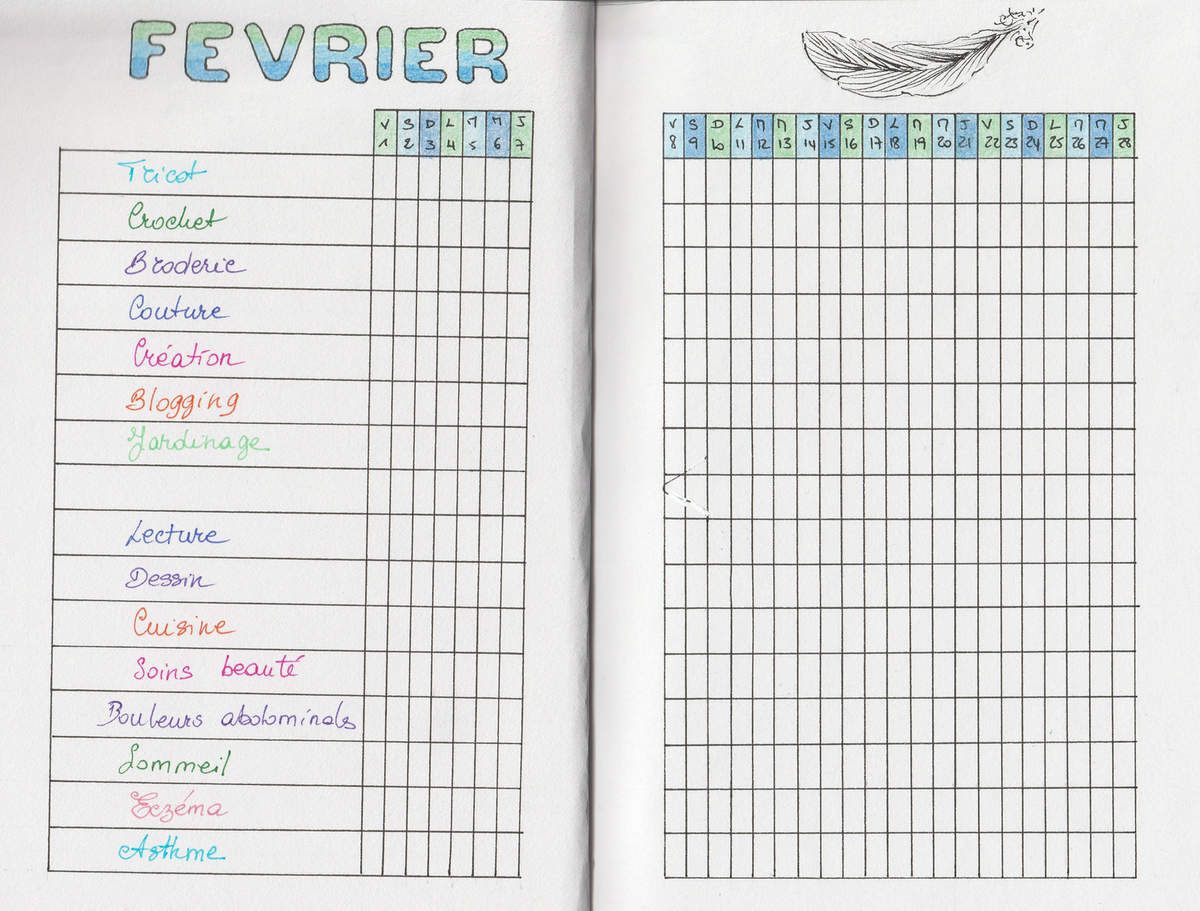 FEVRIER
V S D L M M J
1 2 3 4 5 6 7
V S D L M M J V S D L M M J V S D L M M J
8 9 10 11 12 13 14 15 16 17 18 19 20 21 22 23 24 25 26 27 28
Tricot
Crochet
Broderie
Couture
Création
Blogging
Jardinage
Lecture
Dessin
Cuisine
Soins beauté
Douleurs abdominals
Sommeil
Eczéma
Asthme